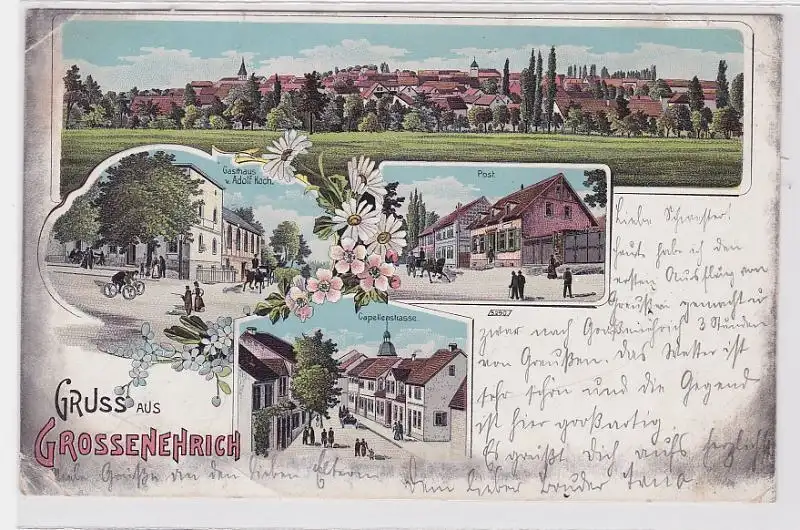 Gasthaus
v. Adolf Koch.
Post
Capellenstrasse
GRUSS AUS
GROSSENEHRICH
Liebe Schwester!
Heute habe ich den
ersten Ausflug von
Greußen gemacht u
zwar nach Großenehrich 3 Stunden
von Greußen. Das Wetter ist
sehr schön und die Gegend
ist hier großartig.
Es grüßt Dich aufs herzlichste
Viele Grüße an die lieben Eltern
Dein lieber Bruder